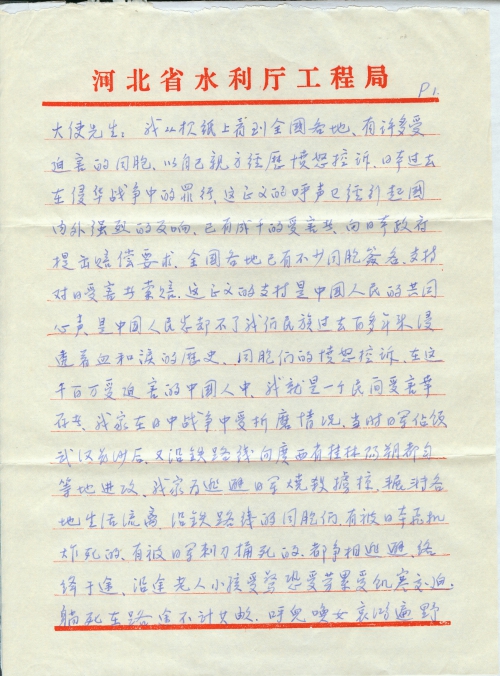 河北省水利厅工程局
P1.
大使先生：我从报纸上看到全國各地、有许多受
迫害的同胞、以自己親身经歷愤怒控诉、日本过去
在侵华战争中的罪行、这正义的呼声已经引起國
内外强烈的反响、已有成千的受害者、向日本政府
提出赔偿要求、全国各地已有不少同胞簽名、支持
对日受害者索赔、这正义的支持是中國人民的共同
心声、是中国人民忘却不了我们民族过去百多年来浸
透着血和淚的歷史、同胞们的愤怒控诉、在这
千百万受迫害的中國人中、我就是一个民间受害幸
存者、我家在日中战争中受折磨情况、当时日军佔领
武汉、长沙后、又沿铁路线向廣西省桂林 都匀
等地進攻、我家为逃避日军烧殺擄掠、辗转各
地生活流离、沿铁路线的同胞们、有被日本飛机
炸死的、有被日军刺刀捅死的、都争相逃避、络
绎于途、沿途老人小孩受驚恐受劳累受饥寒交迫、
躺死在路途不计其数、呼兒喚女哀鸿遍野